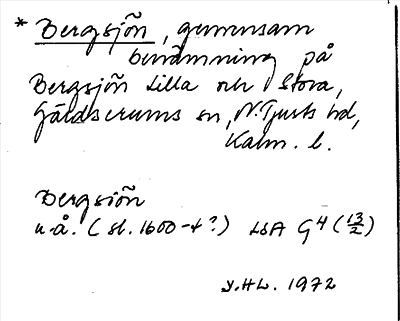 * Bergsjön, gemensam
benämning på
Bergsjön Lilla och Stora,
Gärdserums sn, N. Tjusts hd,
Kalm. l.
Bergsiön
u.å. (sl. 1600-t?) LSA G4 (13/2)
1972